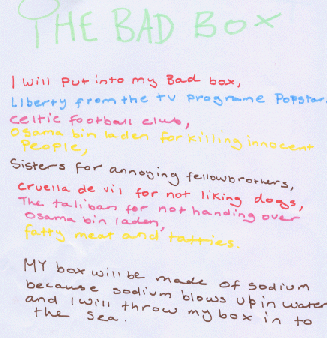 THE BAD BOX
I will put into my Bad box,
Liberty from the TV programe Popstar.
celtic football club,
Osama bin laden for killing innocent
People,
Sisters for annoying fellowbrothers,
cruella de vil for not liking dogs,
The taliban for not handing over
Osama bin laden,
fatty meat and tatties.
MY box will be made of sodium
because sodium blows up in water
and I will throw my box in to
the sea.